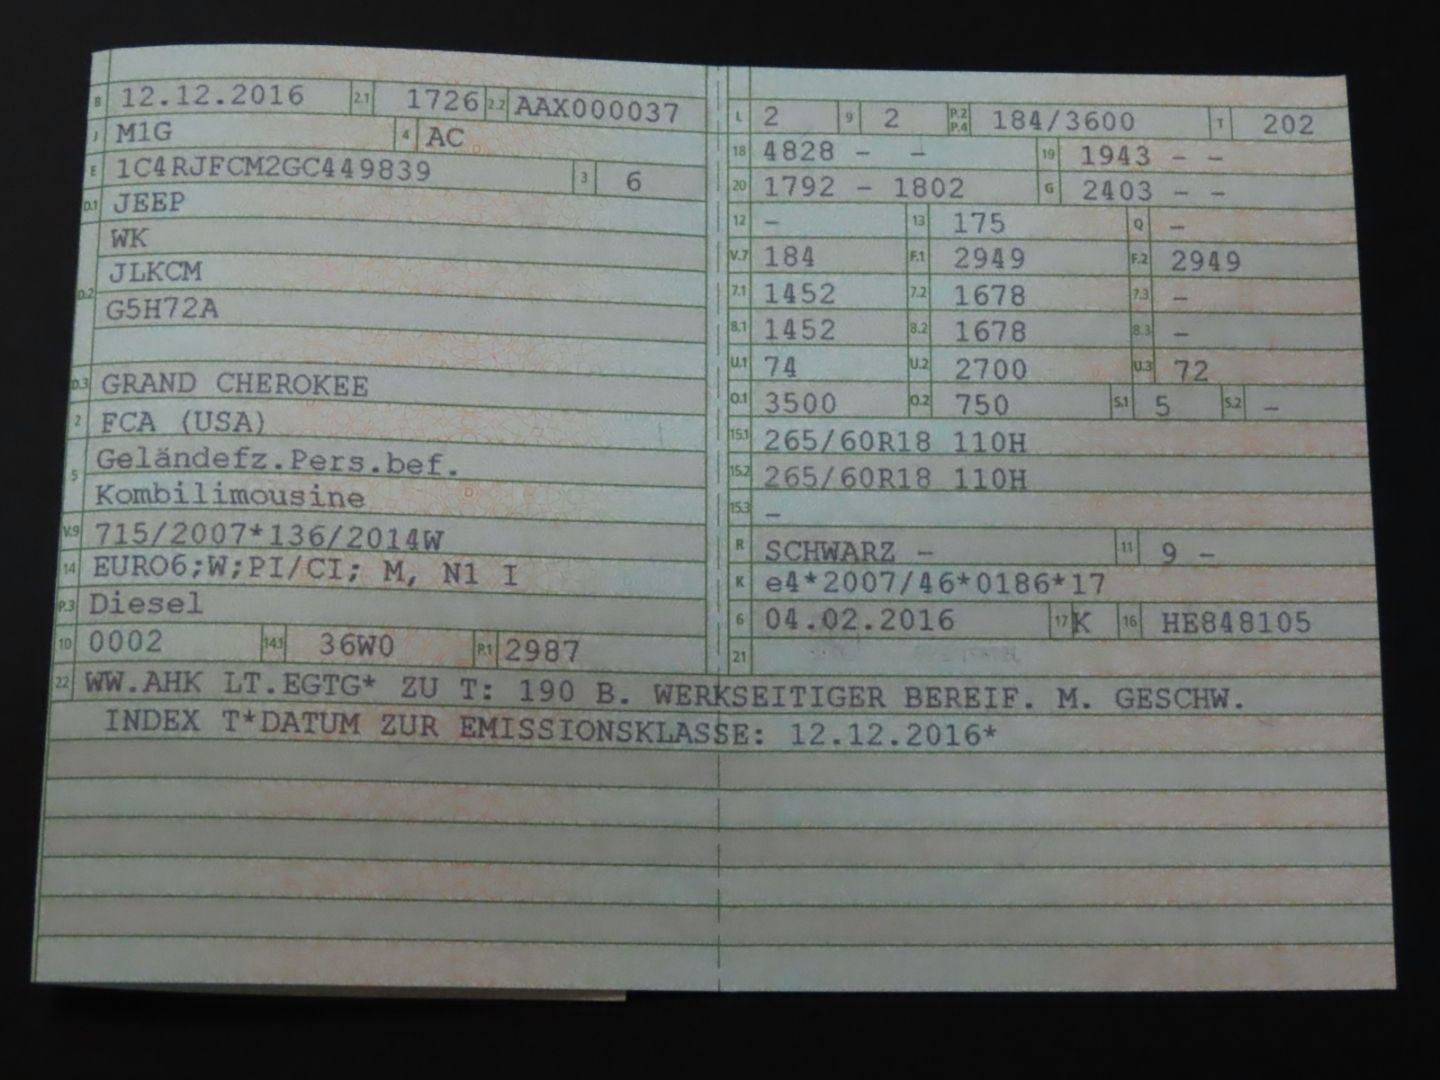 B 12.12.2016 2.1 1726 2.2 AAX000037
J M1G 4 AC
E 1C4RJFCM2GC449839 3 6
D.1 JEEP
WK
D.2 JLKCM
G5H72A
D.3 GRAND CHEROKEE
2 FCA (USA)
5 Geländefz.Pers.bef.
Kombilimousine
V.9 715/2007*136/2014W
14 EURO6;W;PI/CI; M, N1 I
P.3 Diesel
10 0002 14.1 36W0 P.1 2987
L 2 9 2 P.2 P.4 184/3600 T 202
18 4828 - - 19 1943 - -
20 1792 - 1802 G 2403 - -
12 - 13 175 Q -
V.7 184 F.1 2949 F.2 2949
7.1 1452 7.2 1678 7.3 -
8.1 1452 8.2 1678 8.3 -
U.1 74 U.2 2700 U.3 72
O.1 3500 O.2 750 S.1 5 S.2 -
15.1 265/60R18 110H
15.2 265/60R18 110H
15.3 -
R SCHWARZ - 11 9 -
K e4*2007/46*0186*17
6 04.02.2016 17 K 16 HE848105
21
22 WW.AHK LT.EGTG* ZU T: 190 B. WERKSEITIGER BEREIF. M. GESCHW.
INDEX T*DATUM ZUR EMISSIONSKLASSE: 12.12.2016*